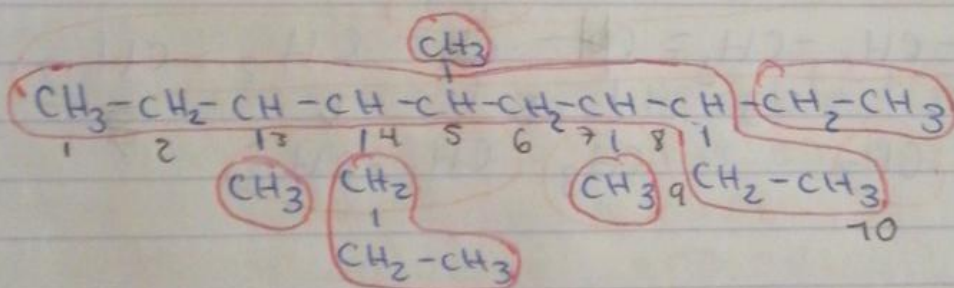 CH3
CH3-CH2-CH-CH-CH-CH2-CH-CH-CH2-CH3
1 2 3 4 5 6 7 8
CH3 CH2 CH3 9 CH2-CH3
10
CH2-CH3